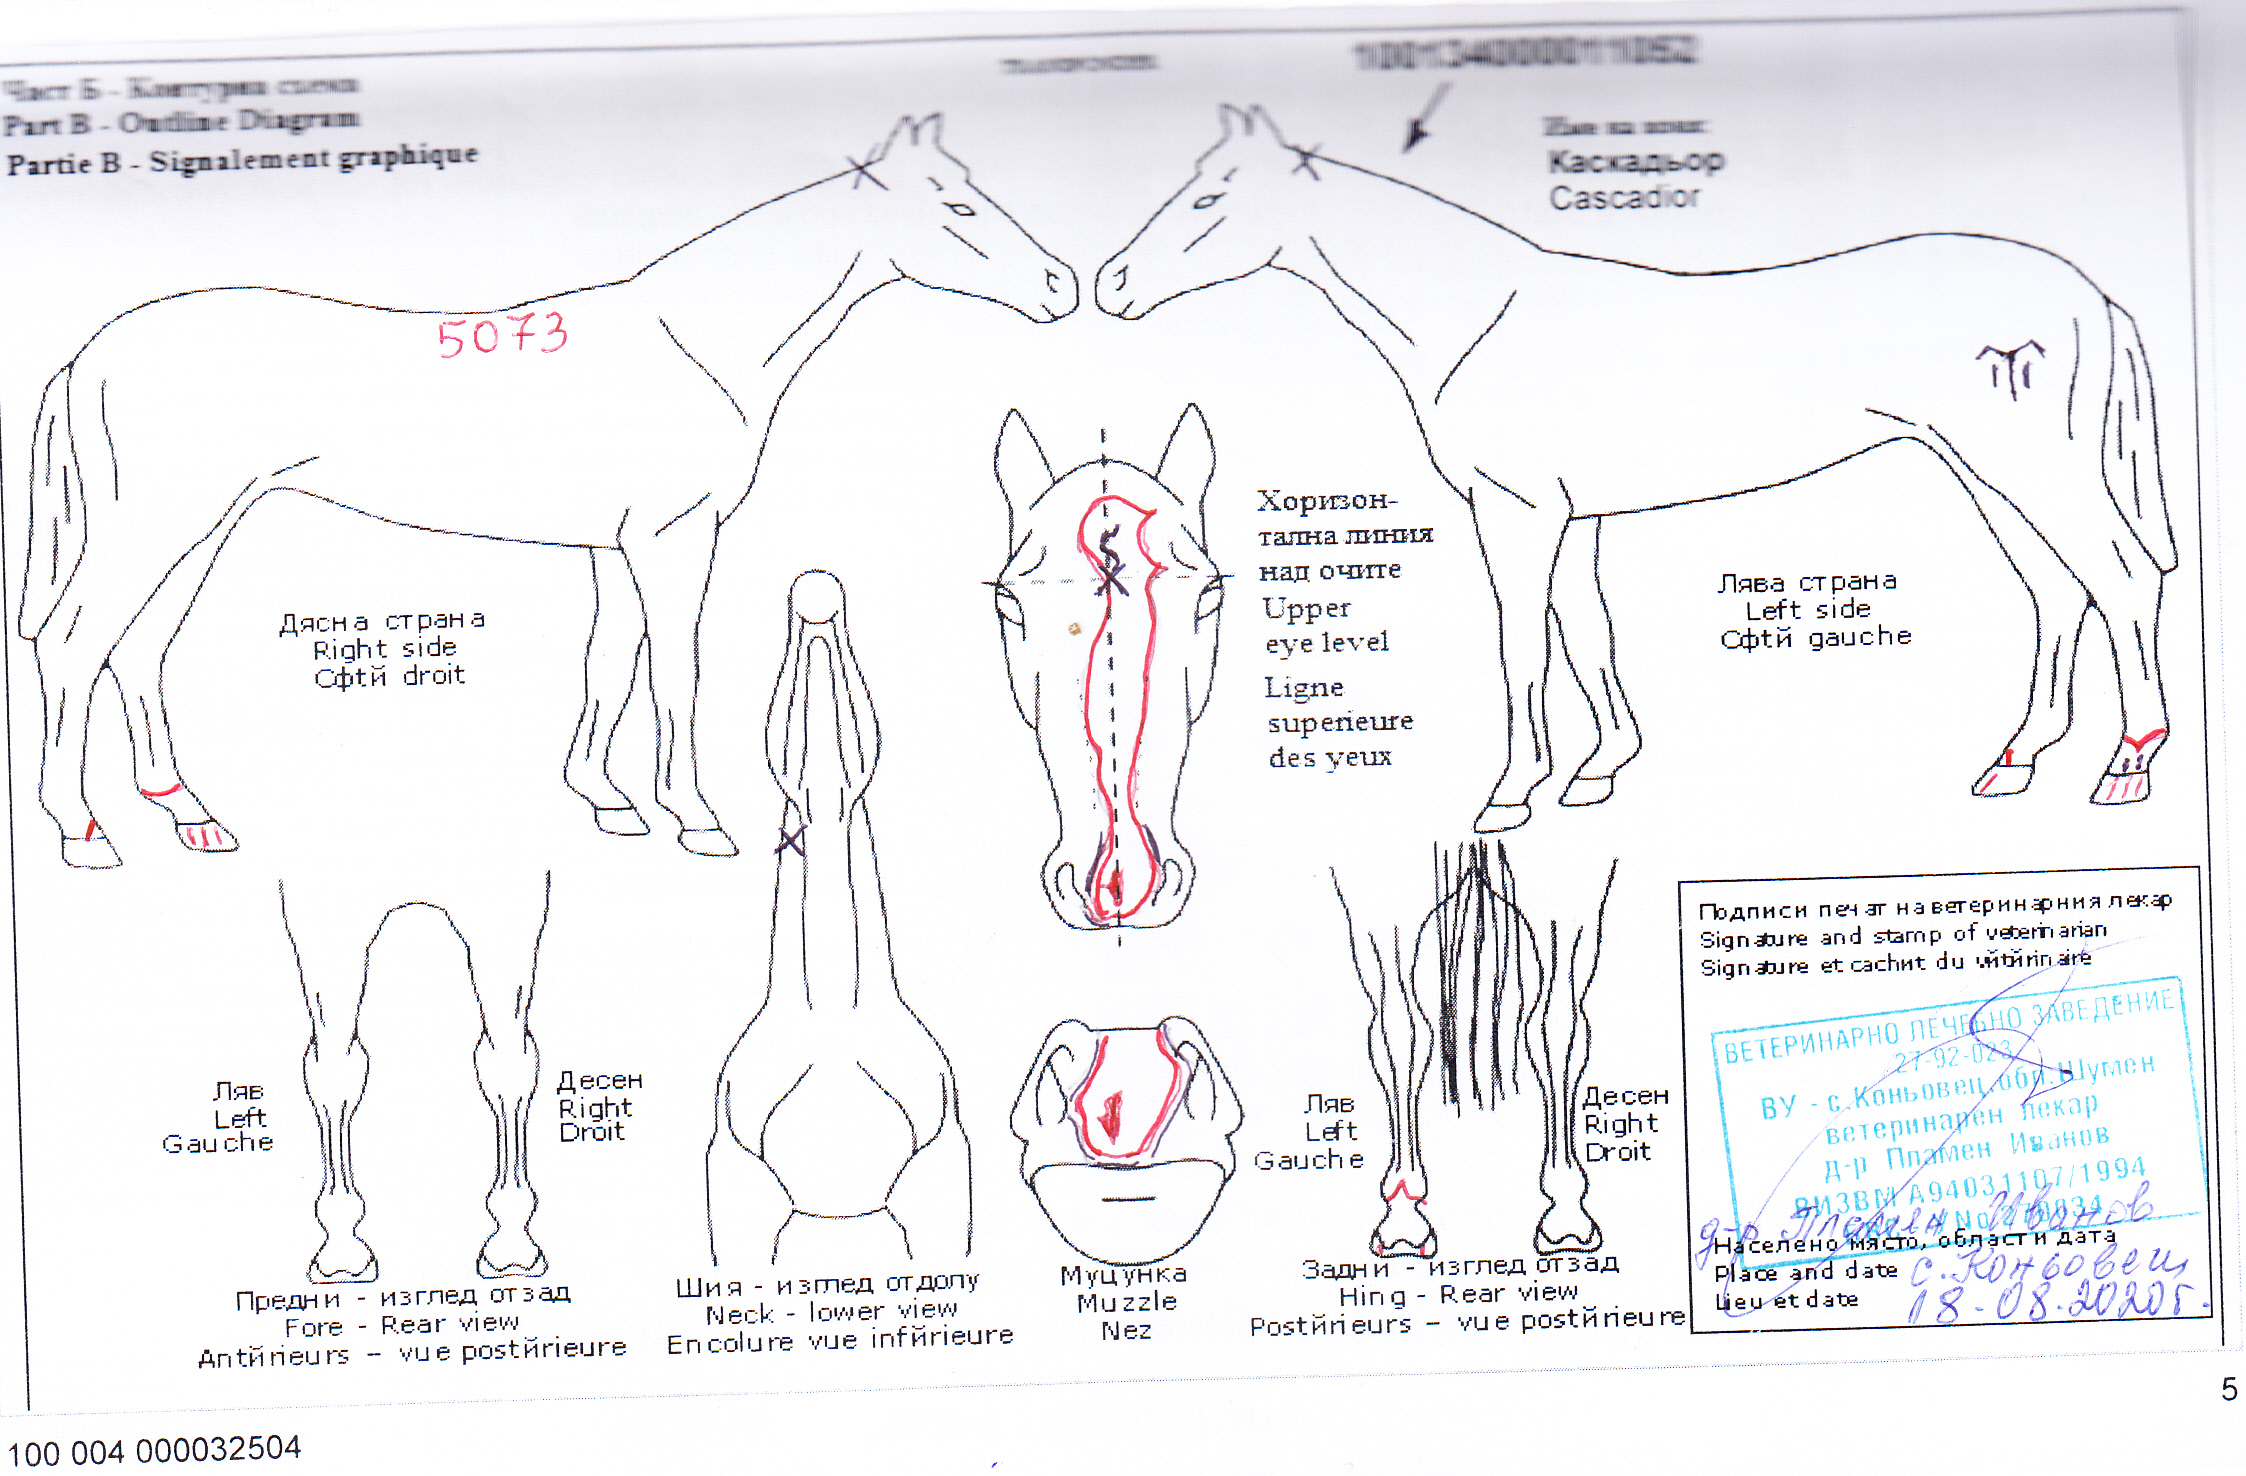 Част Б - Контурна схема
Part B - Outline Diagram
Partie B - Signalement graphique
100134000011052
Име на коня:
Каскадьор
Cascadior
5073
Хоризон-
тална линия
над очите
Upper
eye level
Ligne
superieure
des yeux
Дясна страна
Right side
Сфtй droit
Лява страна
Left side
Сфtй gauche
Ляв
Left
Gauche
Десен
Right
Droit
Предни - изглед отзад
Fore - Rear view
Antйrieurs - vue postйrieure
Шия - изглед отдолу
Neck - lower view
Encolure vue infйrieure
Муцунка
Muzzle
Nez
Ляв
Left
Gauche
Десен
Right
Droit
Задни - изглед отзад
Hing - Rear view
Postйrieurs - vue postйrieure
Подпис и печат на ветеринарния лекар
Signature and stamp of veterinarian
Signature et cachит du vйtйrinaire
ВЕТЕРИНАРНО ЛЕЧЕБНО ЗАВЕДЕНИЕ
27-92-023
ВУ - с.Коньовец,общ.Шумен
ветеринарен лекар
д-р Пламен Иванов
ВИЗВМ А94031107/1994
д-р Пламен Иванов
Населено място, област и дата
Place and date с. Коньовец
Lieu et date 18.08.2020г.
5
100 004 000032504